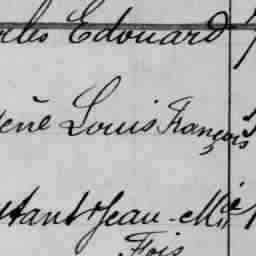 rles Edouard
René Louis François
stant Jean-Mie
Fois